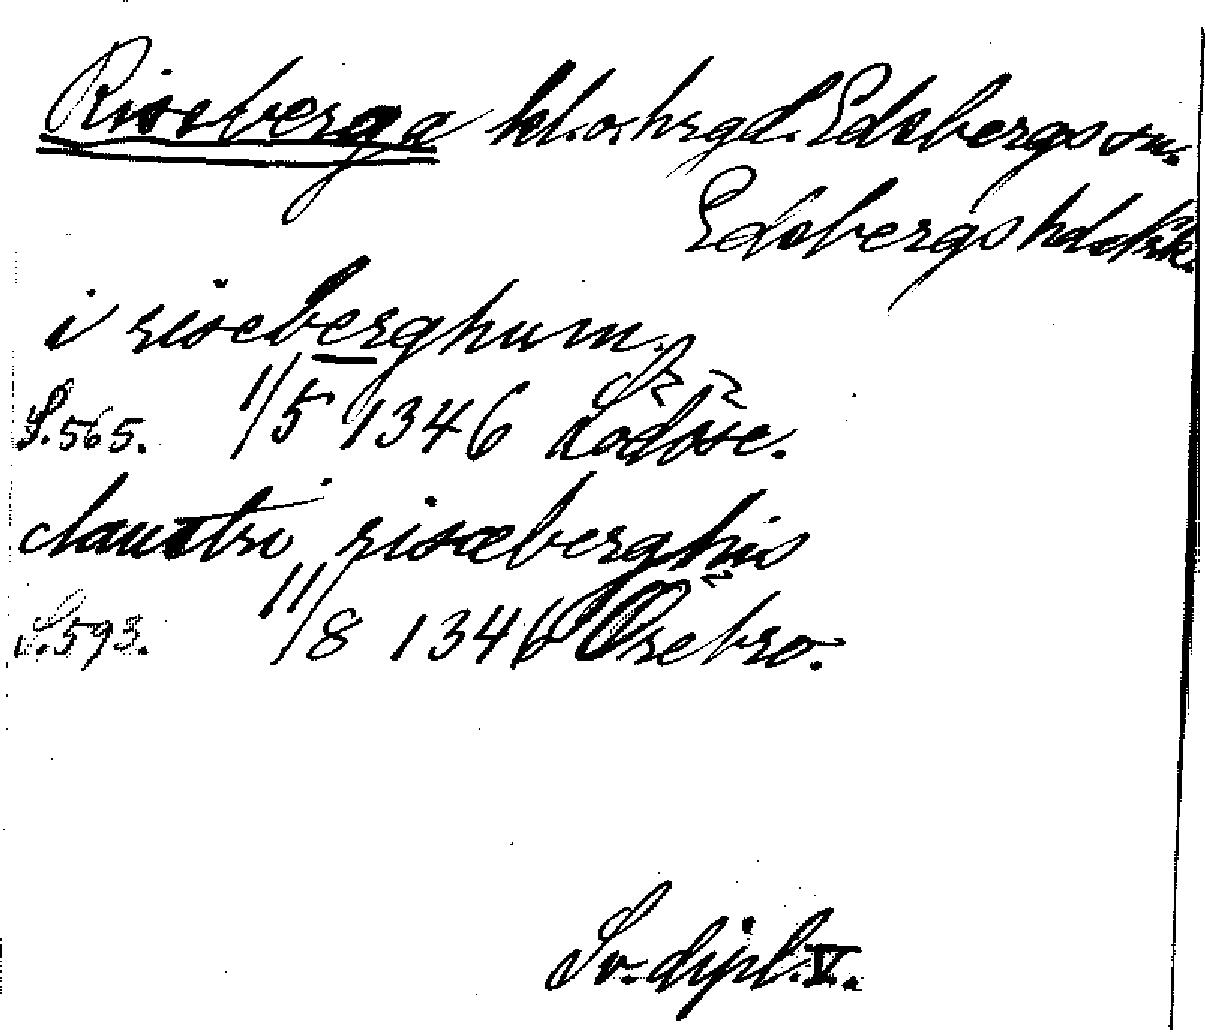 Riseberga kl. o. hrgd. Edsbergs sn.
Edsbergs hd
i riseberghum.
S. 565. 1/5 1346 Lödöse.
claustri risæberghis
S. 593. 11/8 1346 Örebro.
Sv. dipl. V.